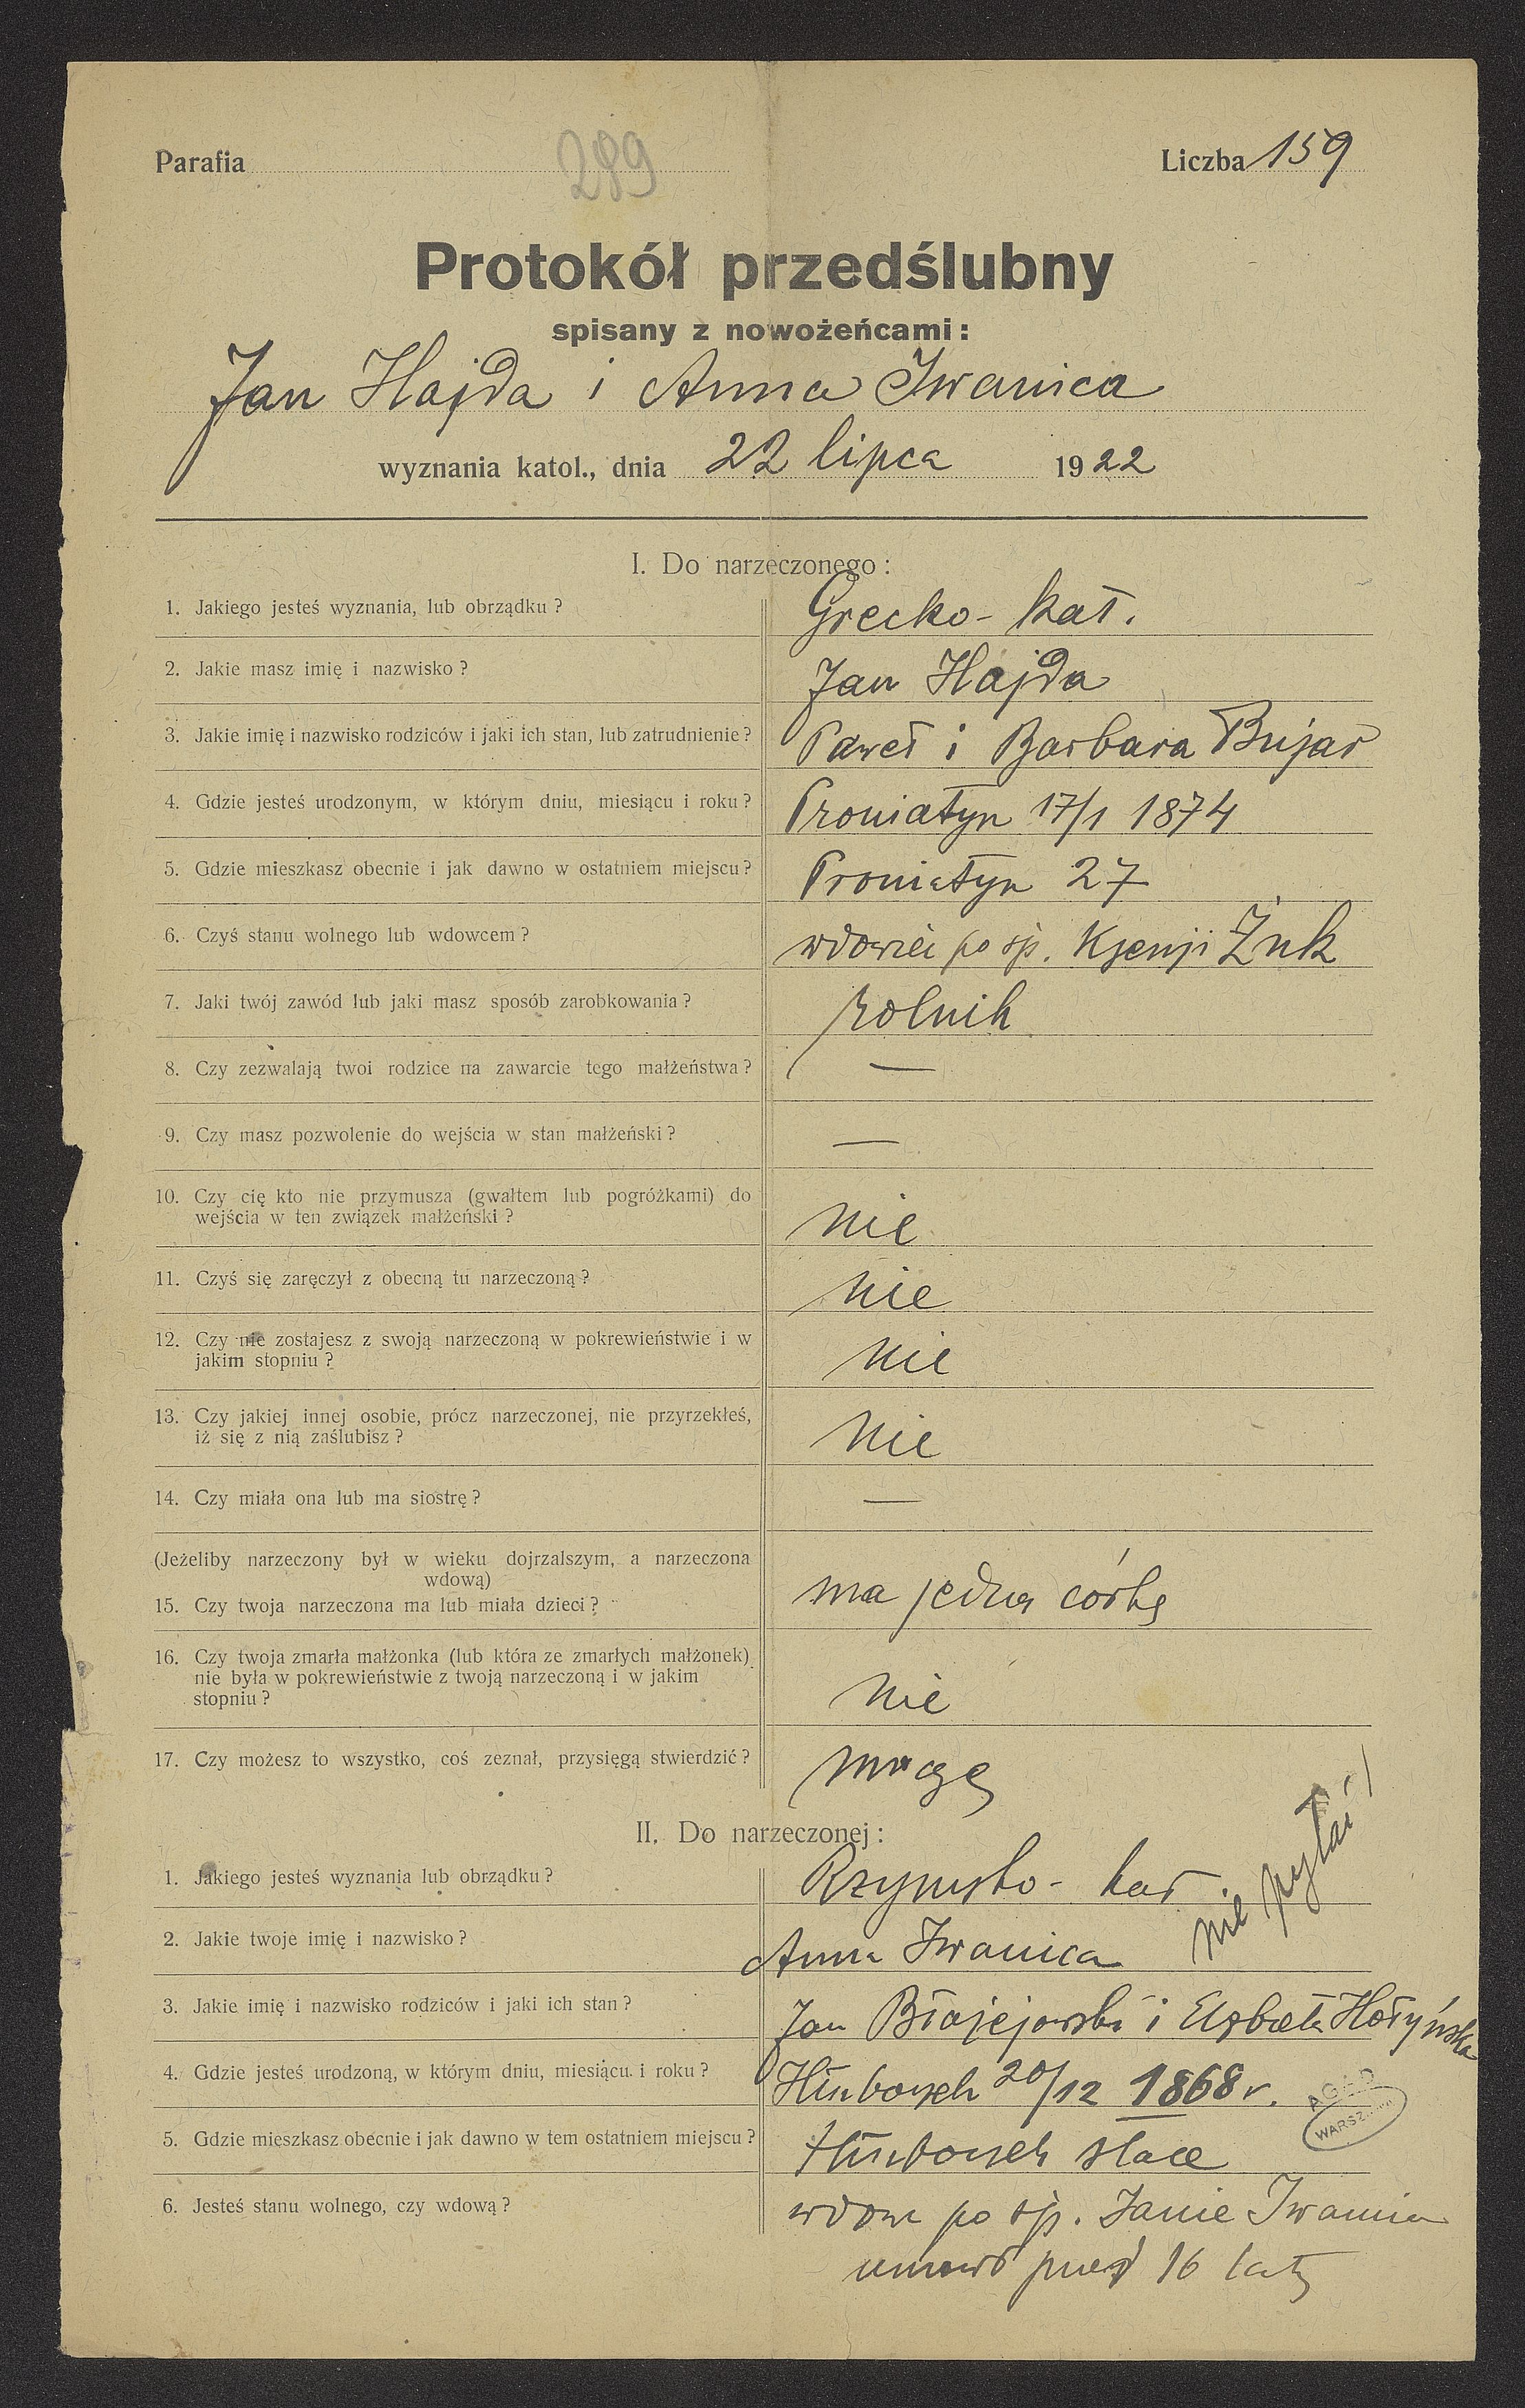 Parafia 289 Liczba 159
Protokół przedślubny
spisany z nowożeńcami:
Jan Hajda i Anna Iwanica
wyznania katol., dnia 22 lipca 1922
I. Do narzeczonego:
1. Jakiego jesteś wyznania, lub obrządku? Grecko-kat.
2. Jakie masz imię i nazwisko? Jan Hajda
3. Jakie imię i nazwisko rodziców i jaki ich stan, lub zatrudnienie? Paweł i Barbara Bujar
4. Gdzie jesteś urodzonym, w którym dniu, miesiącu i roku? Proniatyn 17/1 1874
5. Gdzie mieszkasz obecnie i jak dawno w ostatniem miejscu? Proniatyn 27
6. Czyś stanu wolnego lub wdowcem? wdowiec po śp. Ksenji Żuk
7. Jaki twój zawód lub jaki masz sposób zarobkowania? rolnik
8. Czy zezwalają twoi rodzice na zawarcie tego małżeństwa? —
9. Czy masz pozwolenie do wejścia w stan małżeński? —
10. Czy cię kto nie przymusza (gwałtem lub pogróżkami) do
wejścia w ten związek małżeński? nie
11. Czyś się zaręczył z obecną tu narzeczoną? nie
12. Czy nie zostajesz z swoją narzeczoną w pokrewieństwie i w
jakim stopniu? nie
13. Czy jakiej innej osobie, prócz narzeczonej, nie przyrzekłeś,
iż się z nią zaślubisz? nie
14. Czy miała ona lub ma siostrę? —
(Jeżeliby narzeczony był w wieku dojrzalszym, a narzeczona
wdową)
15. Czy twoja narzeczona ma lub miała dzieci? ma jedną córkę
16. Czy twoja zmarła małżonka (lub która ze zmarłych małżonek)
nie była w pokrewieństwie z twoją narzeczoną i w jakim
stopniu? nie
17. Czy możesz to wszystko, coś zeznał, przysięgą stwierdzić? mogę
II. Do narzeczonej:
1. Jakiego jesteś wyznania lub obrządku? Rzymsko-kat.
nie pytać!
2. Jakie twoje imię i nazwisko? Anna Iwanica
3. Jakie imię i nazwisko rodziców i jaki ich stan? Jan Błajejowski i Elzbieta Hołyńska
4. Gdzie jesteś urodzoną, w którym dniu, miesiącu i roku? Hłuboczek 20/12 1868 r.
AGAD
WARSZAWA
5. Gdzie mieszkasz obecnie i jak dawno w tem ostatniem miejscu? Hłuboczek stale
6. Jesteś stanu wolnego, czy wdową? wdowa po śp. Janie Iwanica
umarł przed 16 laty